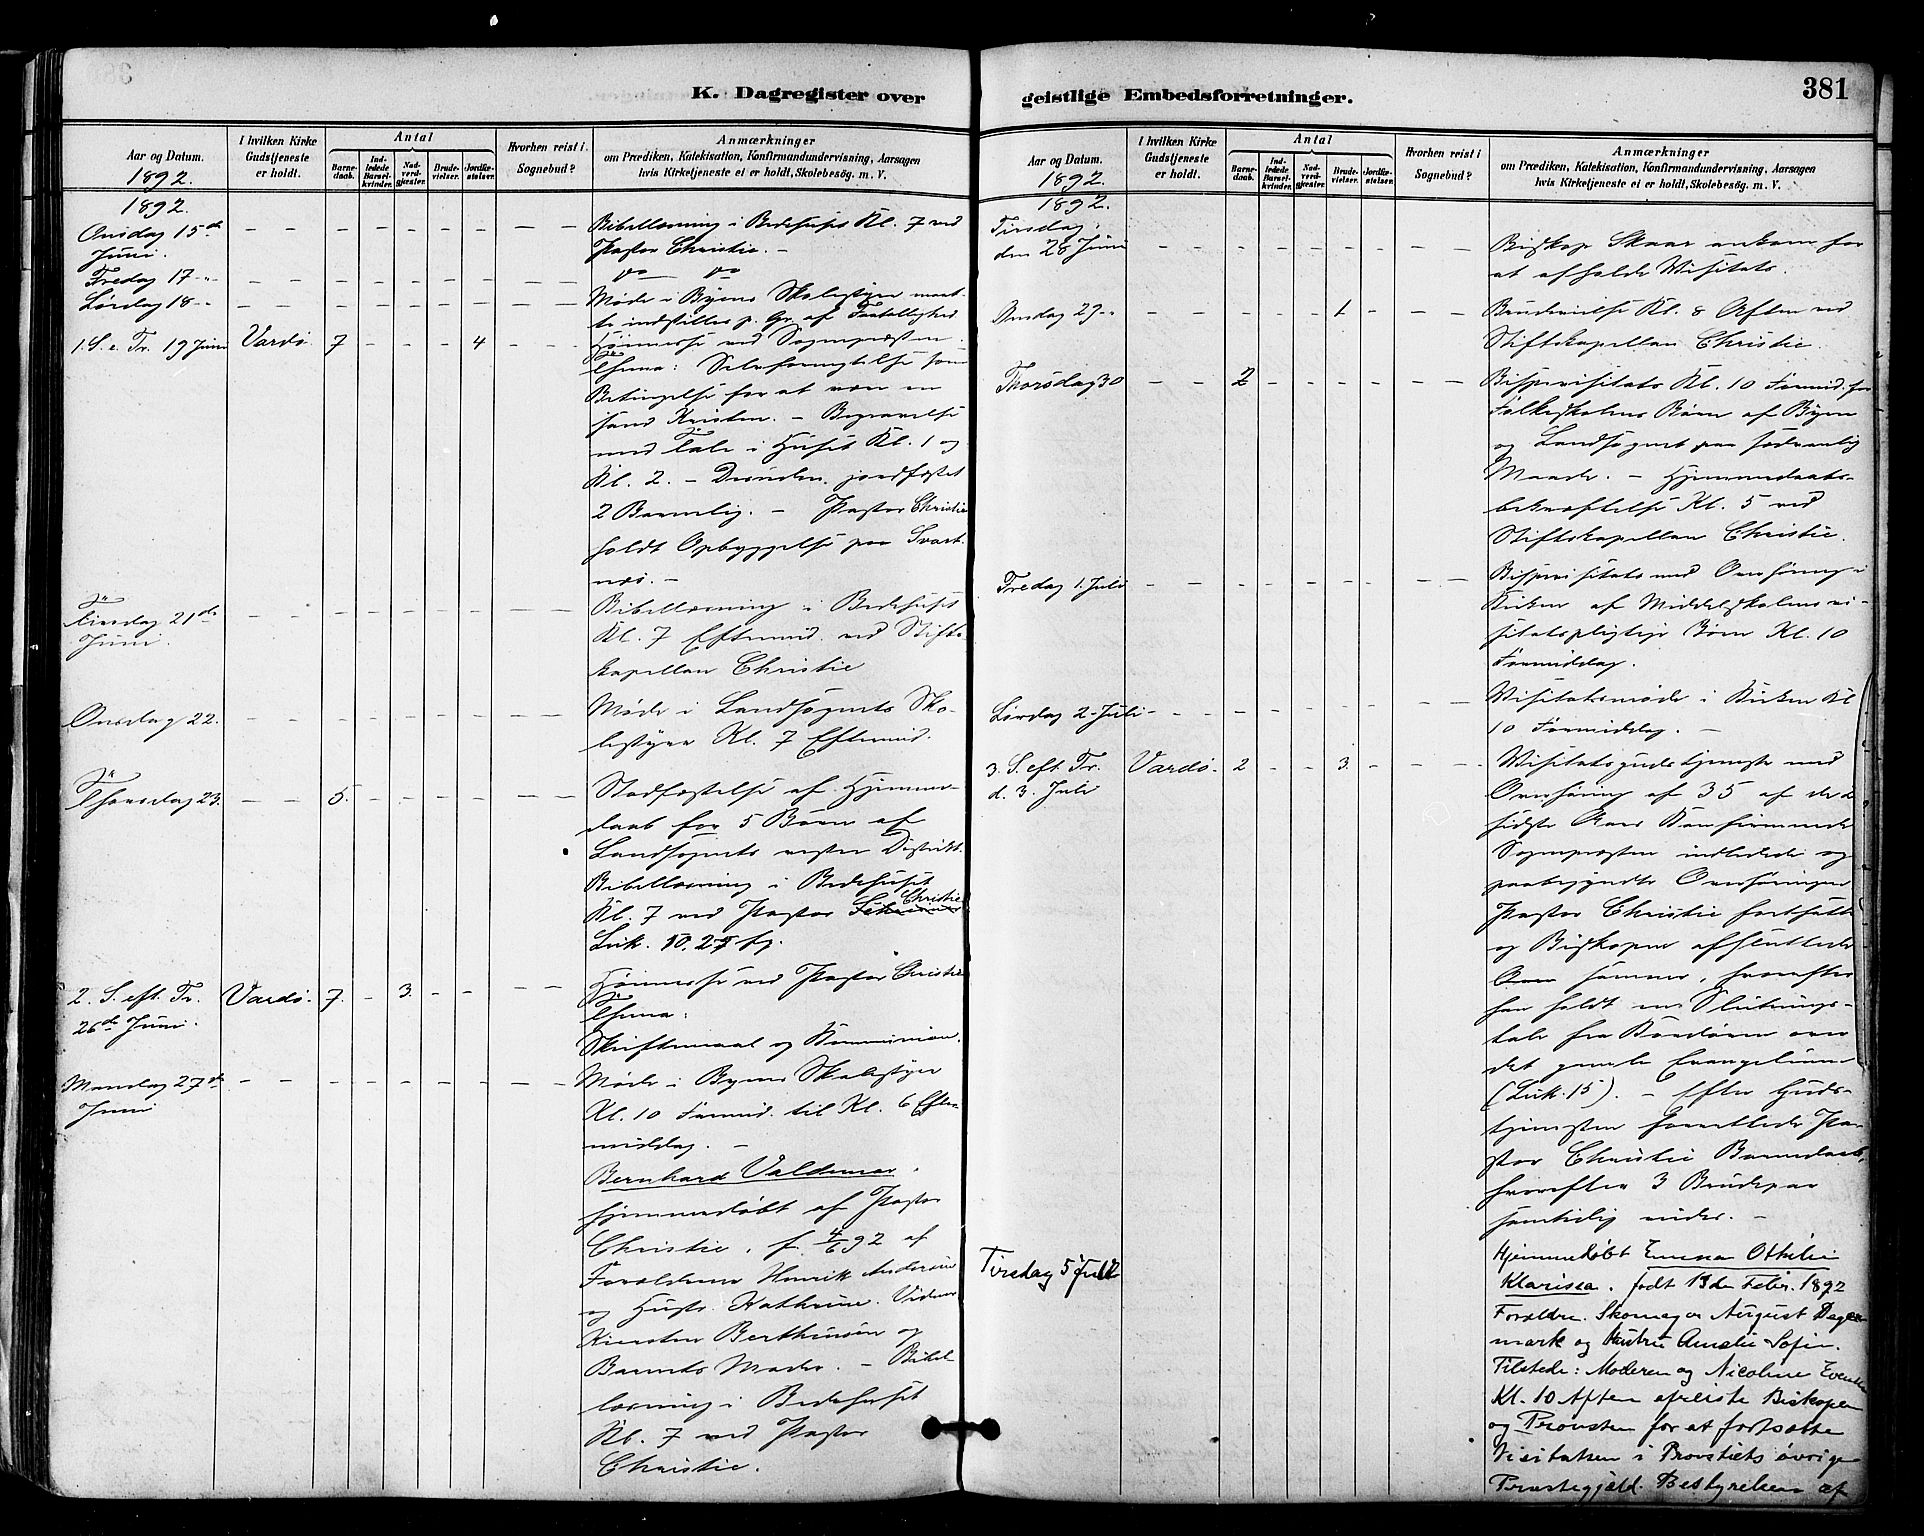 K. Dagregister over
Aar og Datum.
1892.
I hvilken Kirke
Gudstjeneste
er holdt.
Antal
Barne-
daab.
Ind-
ledede
Barsel-
kvinder.
Nad-
verd-
gjæster.
Brude-
vielser.
Jordfæ-
stelser.
Hvorhen reist i
Sognebud?
Anmærkninger
om Prædiken, Katekisation, Konfirmandundervisning, Aarsagen
hvis Kirketjeneste ei er holdt, Skolebesøg. m. V.
1892.
Onsdag 15de
Juni.
Bibellæsning i Bedehuset Kl. 7 ved
Pastor Christie. –
Fredag 17 -"-
do do
Lørdag 18 -"-
Møde i Byens Skolestyre maat-
te indstilles p. Gr. af
1. S. e. Tr. 19 Juni Vardø 7 4
Høimesse ved Sognepræsten.
Thema: Selvfornegtelse som
Betingelse for at være en
sand Kristen. – Begravelse
med Tale i Huset Kl. 1 og
Kl. 2. – Desuden jordfæstet
2 Barnelig. – Pastor Christie
holdt Opbyggelse paa Svart-
næs. –
Tirsdag 21de
Juni.
Bibellæsning i Bedehuset
Kl. 7 Eftermid. ved Stifts-
kapellan Christie
Onsdag 22.
Møde i Landsognets Sko-
lestyre Kl. 7 Eftermid.
Thorsdag 23. 5.
Stadfæstelse af Hjemme-
daab for 5 Børn af
Landsognets vestre Distrikt.
Bibellæsning i Bedehuset
Kl. 7 ved Pastor Christie
Luk. 10. 25 fg.
2. S. eft. Tr. Vardø. 7. 3.
26de Juni.
Høimesse ved Pastor Christie
Thema:
Skriftemaal og Kommunion.
Mandag 27de
Juni
Møde i Byens Skolestyre
Kl. 10 Formid. til Kl. 6 Efter-
middag. –
Bernhard Valdemar,
hjemmedøbt af Pastor
Christie, f. 4/6 92 af
Forældrene Henrik Andersen
og Hustr. Kathrine. Vidner
Kirsten Berthinsen og
Barnets Moder. – Bibel-
læsning i Bedehuset
Kl. 7 ved Pastor
Christie.
geistlige Embedsforretninger.
381
Aar og Datum.
1892.
I hvilken Kirke
Gudstjeneste
er holdt.
Antal
Barne-
daab.
Ind-
ledede
Barsel-
kvinder.
Nad-
verd-
gjæster.
Brude-
vielser.
Jordfæ-
stelser.
Hvorhen reist i
Sognebud?
Anmærkninger
om Prædiken, Katekisation, Konfirmandundervisning, Aarsagen
hvis Kirketjeneste ei er holdt, Skolebesøg. m. V.
1892.
Tirsdag
den 28 Juni
Biskop Skaar ankom for
at afholde Visitats.
Onsdag 29 -"- 1.
Brudevielse Kl. 8 Aften ved
Stiftskapellan Christie.
Thorsdag 30 2
Bispevisitats Kl. 10 Formid. for
Folkeskolens Børn af Byen
og Landsognet paa sædvanlig
Maade. – Hjemmedaabs-
bekræftelse Kl. 5 ved
Stiftskapellan Christie.
Fredag 1. Juli
Bispevisitats med Overhøring i
Kirken af Middelskolens vi-
sitatspligtige Børn Kl. 10
Formiddag.
Lørdag 2. Juli
Visitatsmøde i Kirken Kl
10 Formiddag. –
3. S. eft Tr. Vardø. 2 3.
d. 3. Juli
Visitatsgudstjeneste med
Overhøring af 35 af de 2
sidste Aars Konfirmerede
Sognepræsten indledede og
paabegyndte Overhøringen
Pastor Christie fortsatte
og Biskopen afsluttede
samme, hvorefter
han holdt en Slutnings-
tale fra Kordøren over
det gamle Evangelium
(Luk. 15). – Efter Guds-
tjenesten forrettede Pa-
stor Christie Barnedaab,
hvorefter 3 Brudepar
samtidig viedes. –
Tirsdag 5 Juli
Hjemmedøbt Emma Othilie
Klarissa. født 13de Febr. 1892
Forældre. Skomager August Dagen-
mark og Hustru Amalie Sofie.
Tilstede: Moderen og Nicoline
Kl. 10 Aften afreiste Biskopen
og Provsten for at fortsætte
Visitatsen i Provstiets øvrige
Præstegjæld. Bestyrelsen af